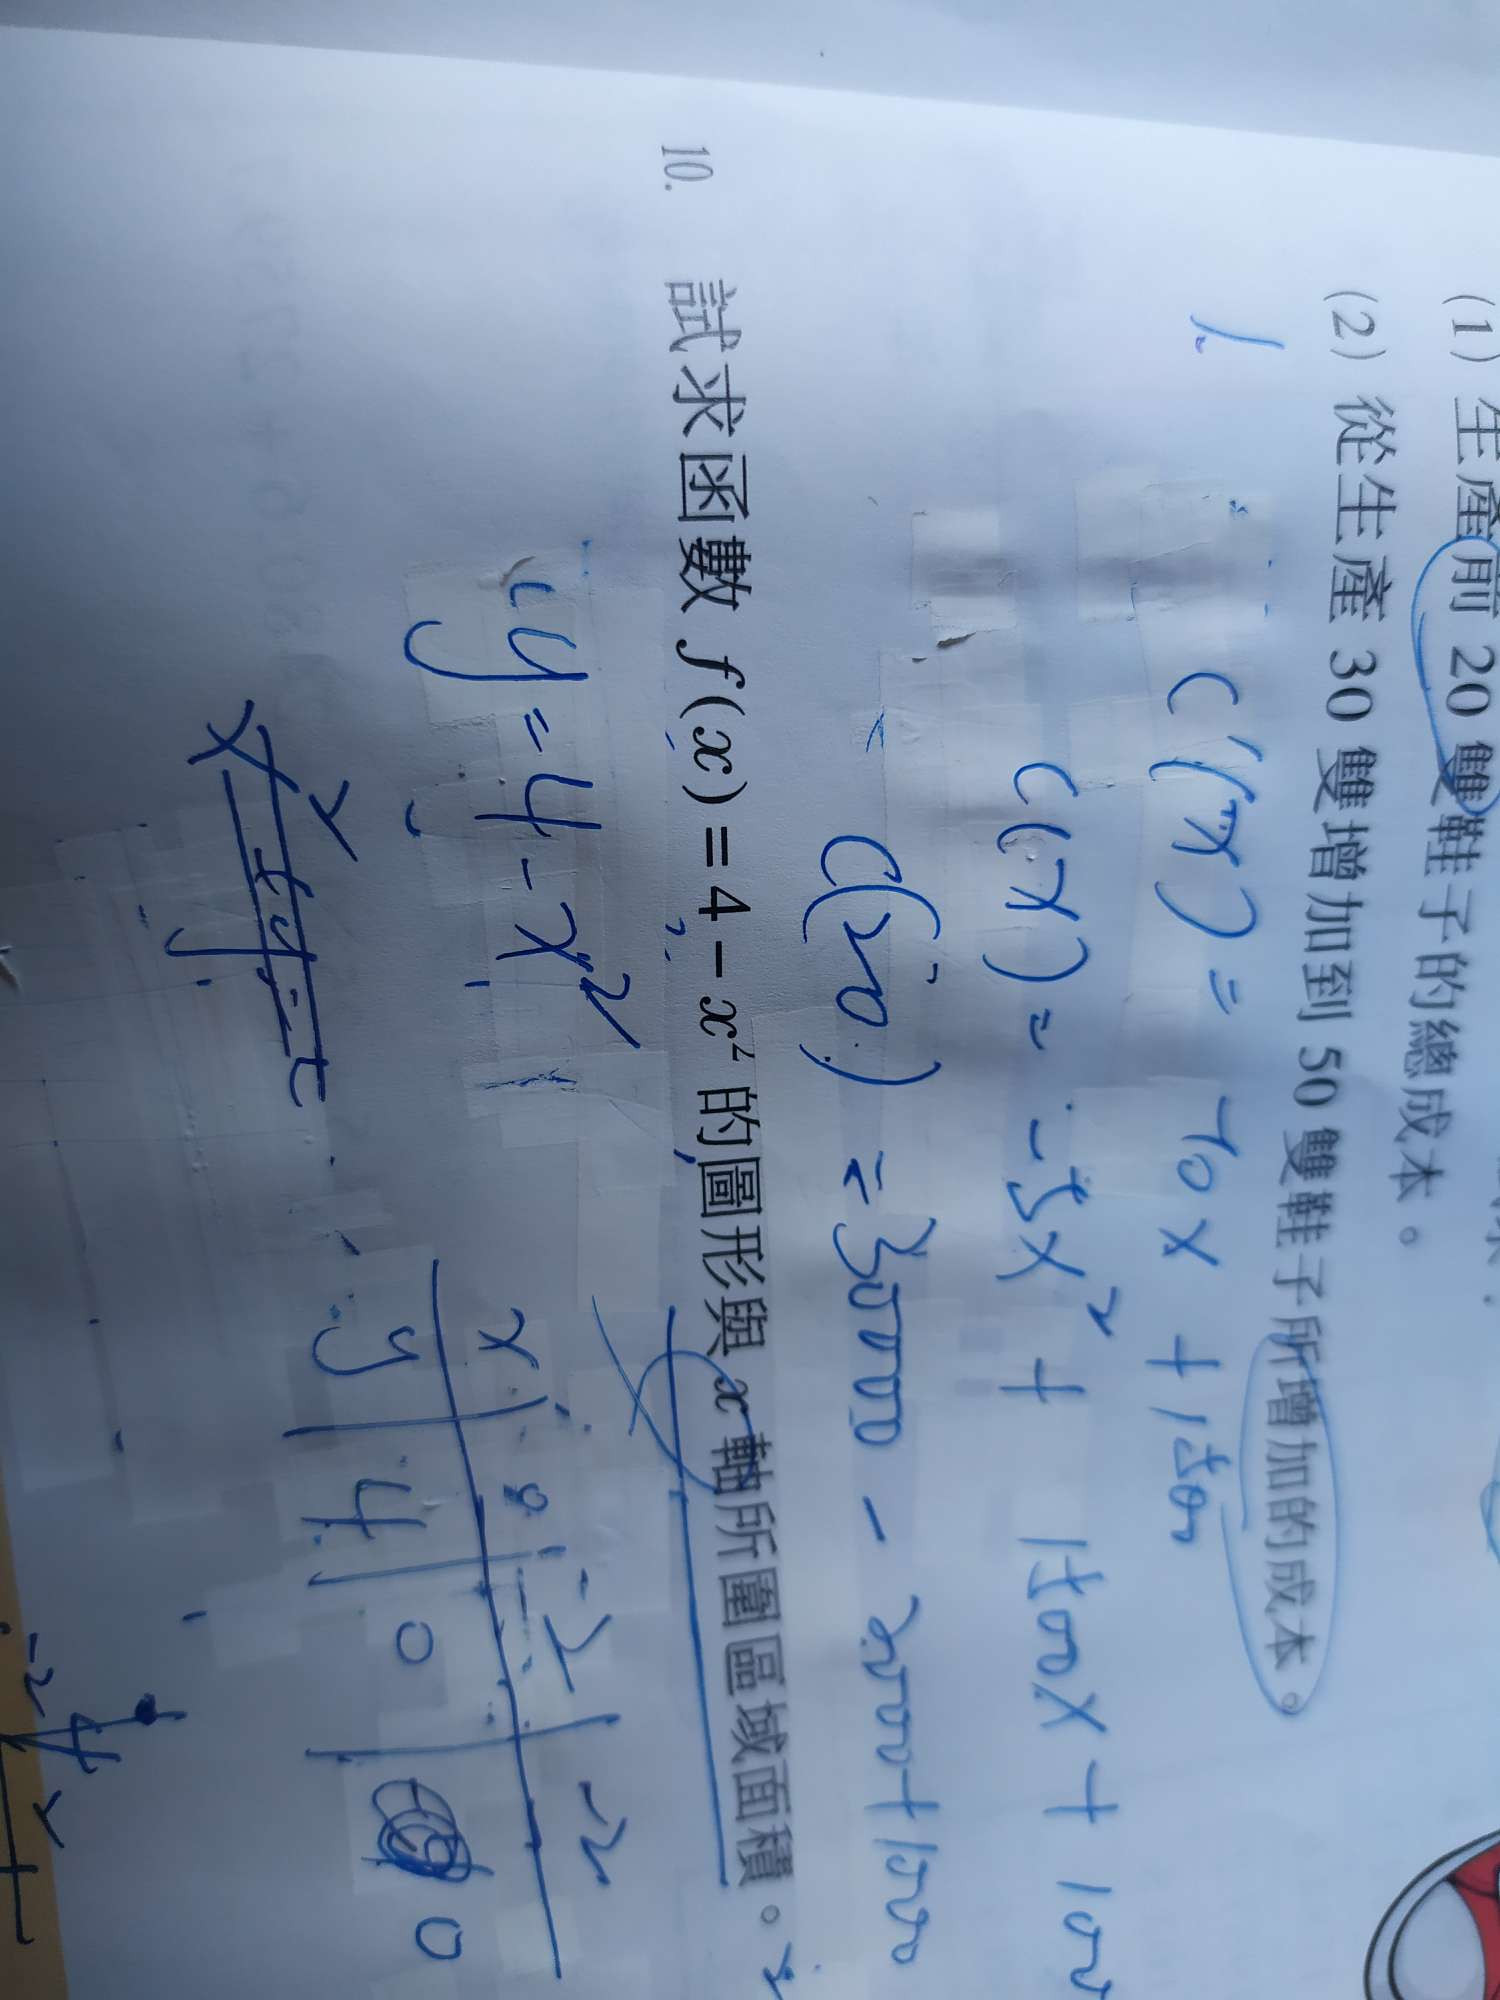 (1) 生產前 20 雙鞋子的總成本。
(2) 從生產 30 雙增加到 50 雙鞋子所增加的成本。
1.
C'(x) = 70x + 1500
C(x) = -5x² + 1500x + 100
C(20) = 30000 - 2000 + 1000
10. 試求函數 f(x) = 4 - x² 的圖形與 x 軸所圍區域面積。
y = 4 - x²
x 0 -2 -2
y 4 0 0
-2